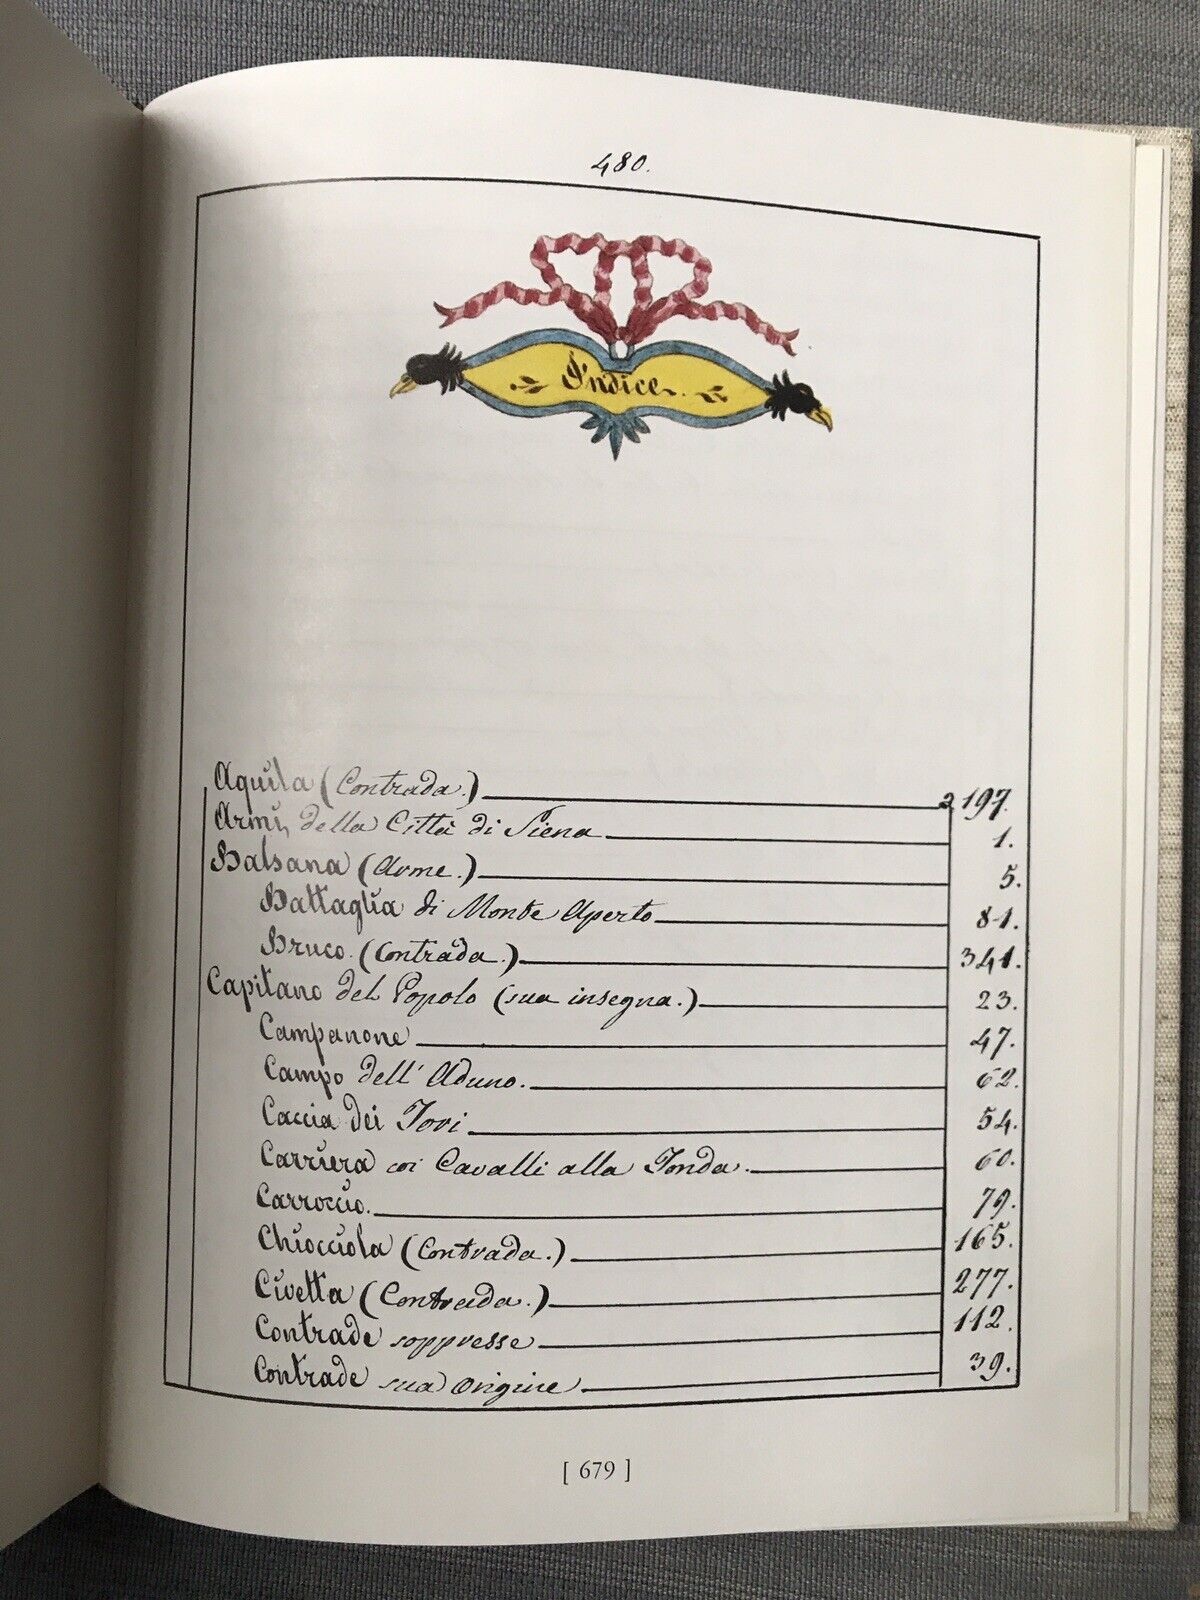 480.
Indice.
Aquila (Contrada.) 197.
Armi della Città di Siena 1.
Balsana (Arme.) 5.
Battaglia di Monte Aperto 81.
Bruco. (Contrada.) 341.
Capitano del Popolo (sua insegna.) 23.
Campanone 47.
Campo dell' Aduno. 62.
Caccia dei Tori 54.
Carriera coi Cavalli alla Tonda. 60.
Carroccio. 79.
Chiocciola (Contrada.) 165.
Civetta (Contrada.) 277.
Contrade soppresse 112.
Contrade sua origine 39.
[ 679 ]